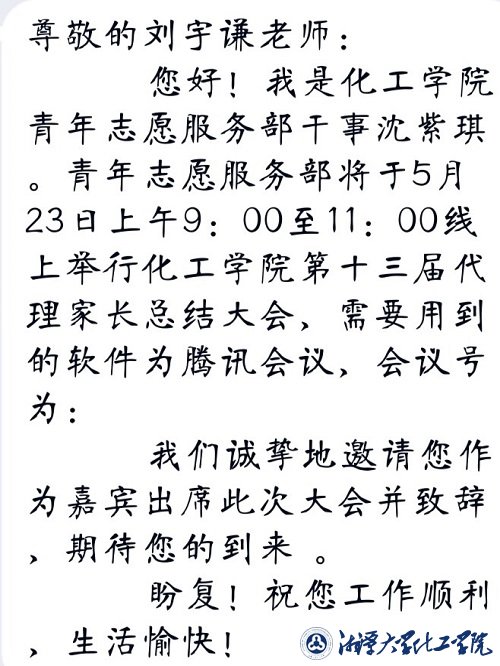 尊敬的刘宇谦老师：
您好！我是化工学院
青年志愿服务部干事沈紫琪
。青年志愿服务部将于5月
23日上午9：00至11：00线
上举行化工学院第十三届代
理家长总结大会、需要用到
的软件为腾讯会议，会议号
为：
我们诚挚地邀请您作
为嘉宾出席此次大会并致辞
、期待您的到来 。
盼复！祝您工作顺利
、生活愉快！
湘潭大学化工学院